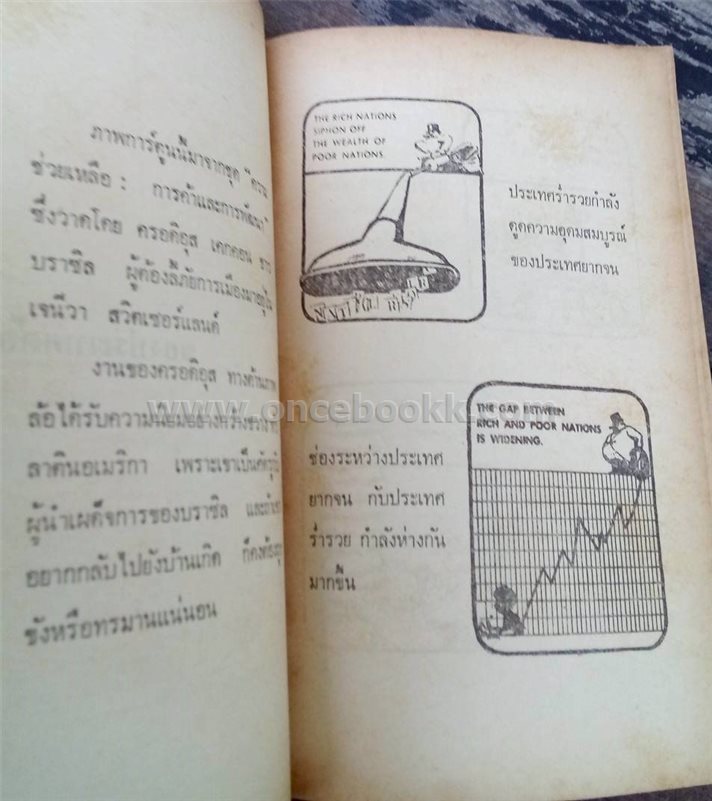 ภาพการ์ตูนนี้มาจากชุด "ความ
ช่วยเหลือ : การค้าและการพัฒนา"
ซึ่งวาดโดย ครอดิอุส เคกคอน ชาว
บราซิล ผู้ต้องลี้ภัยการเมืองมาอยู่ใน
เจนีวา สวิตเซอร์แลนด์
งานของครอดิอุส ทางด้านภาพ
ล้อได้รับความนิยมอย่าง
ลาตินอเมริกา เพราะเขาเป็น
ผู้นำเผด็จการของบราซิล และถ้า
อยากกลับไปยังบ้านเกิด ก็คง
ขังหรือทรมานแน่นอน
THE RICH NATIONS
SIPHON OFF
THE WEALTH OF
POOR NATIONS.
ประเทศร่ำรวยกำลัง
ดูดความอุดมสมบูรณ์
ของประเทศยากจน
www.oncebookk.com
THE GAP BETWEEN
RICH AND POOR NATIONS
IS WIDENING.
ช่องระหว่างประเทศ
ยากจน กับประเทศ
ร่ำรวย กำลังห่างกัน
มากขึ้น